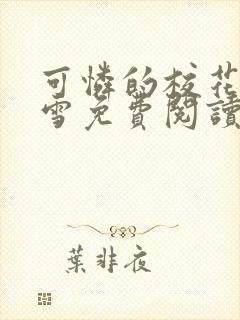 可憐的校花
雪免費閱讀
葉非夜